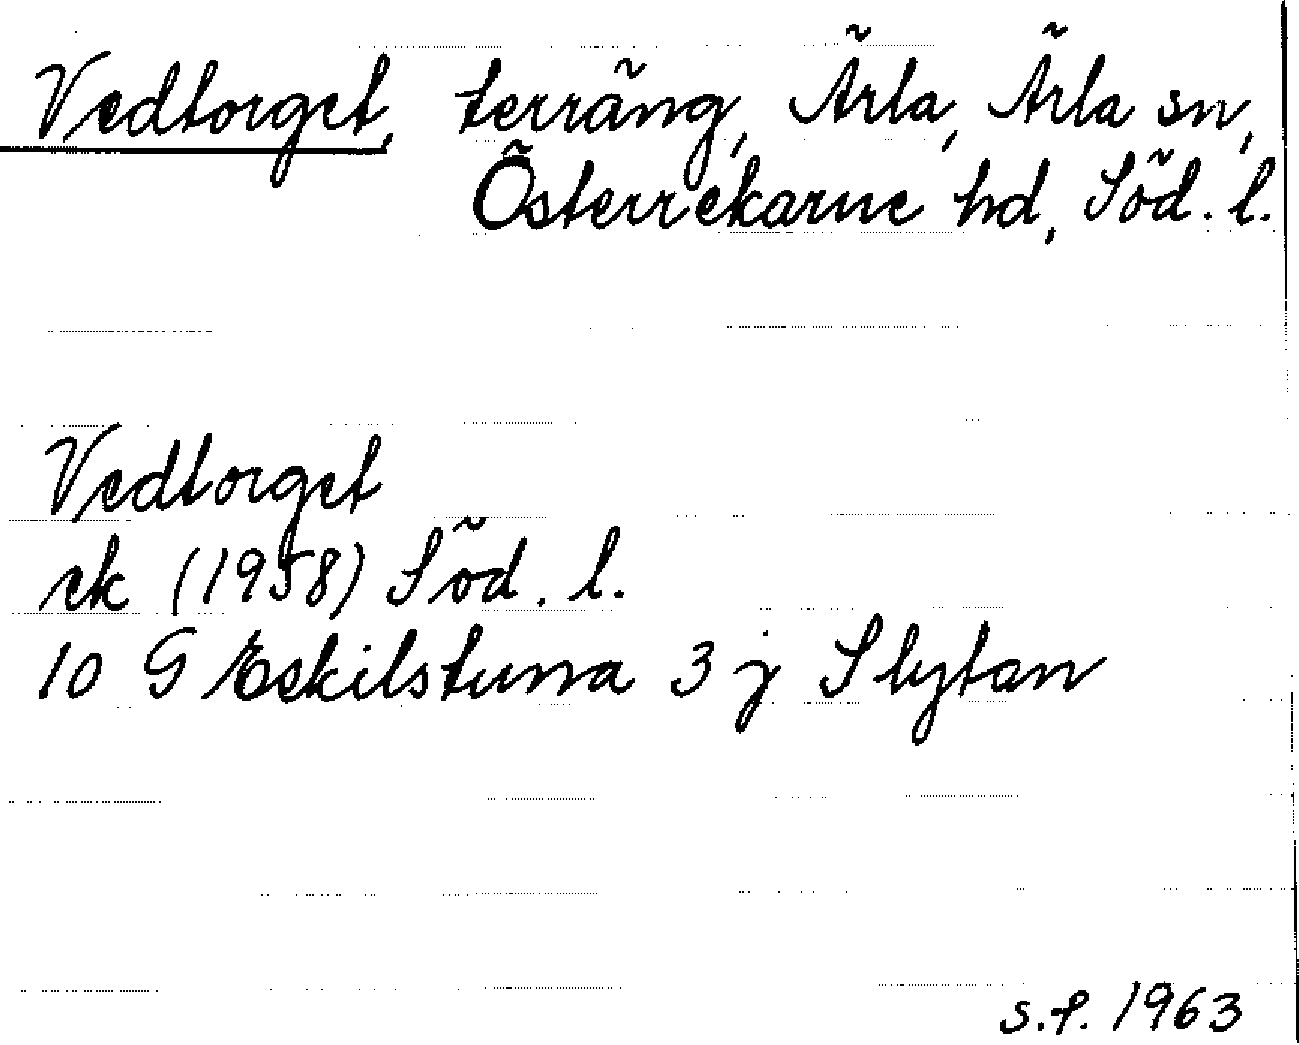 Vedtorget, terräng, Ärla, Ärla sn,
Österrekarne hd, Söd. l.
Vedtorget
ek (1958) Söd. l.
10 G Eskilstuna 3 j Slytan
s.f. 1963